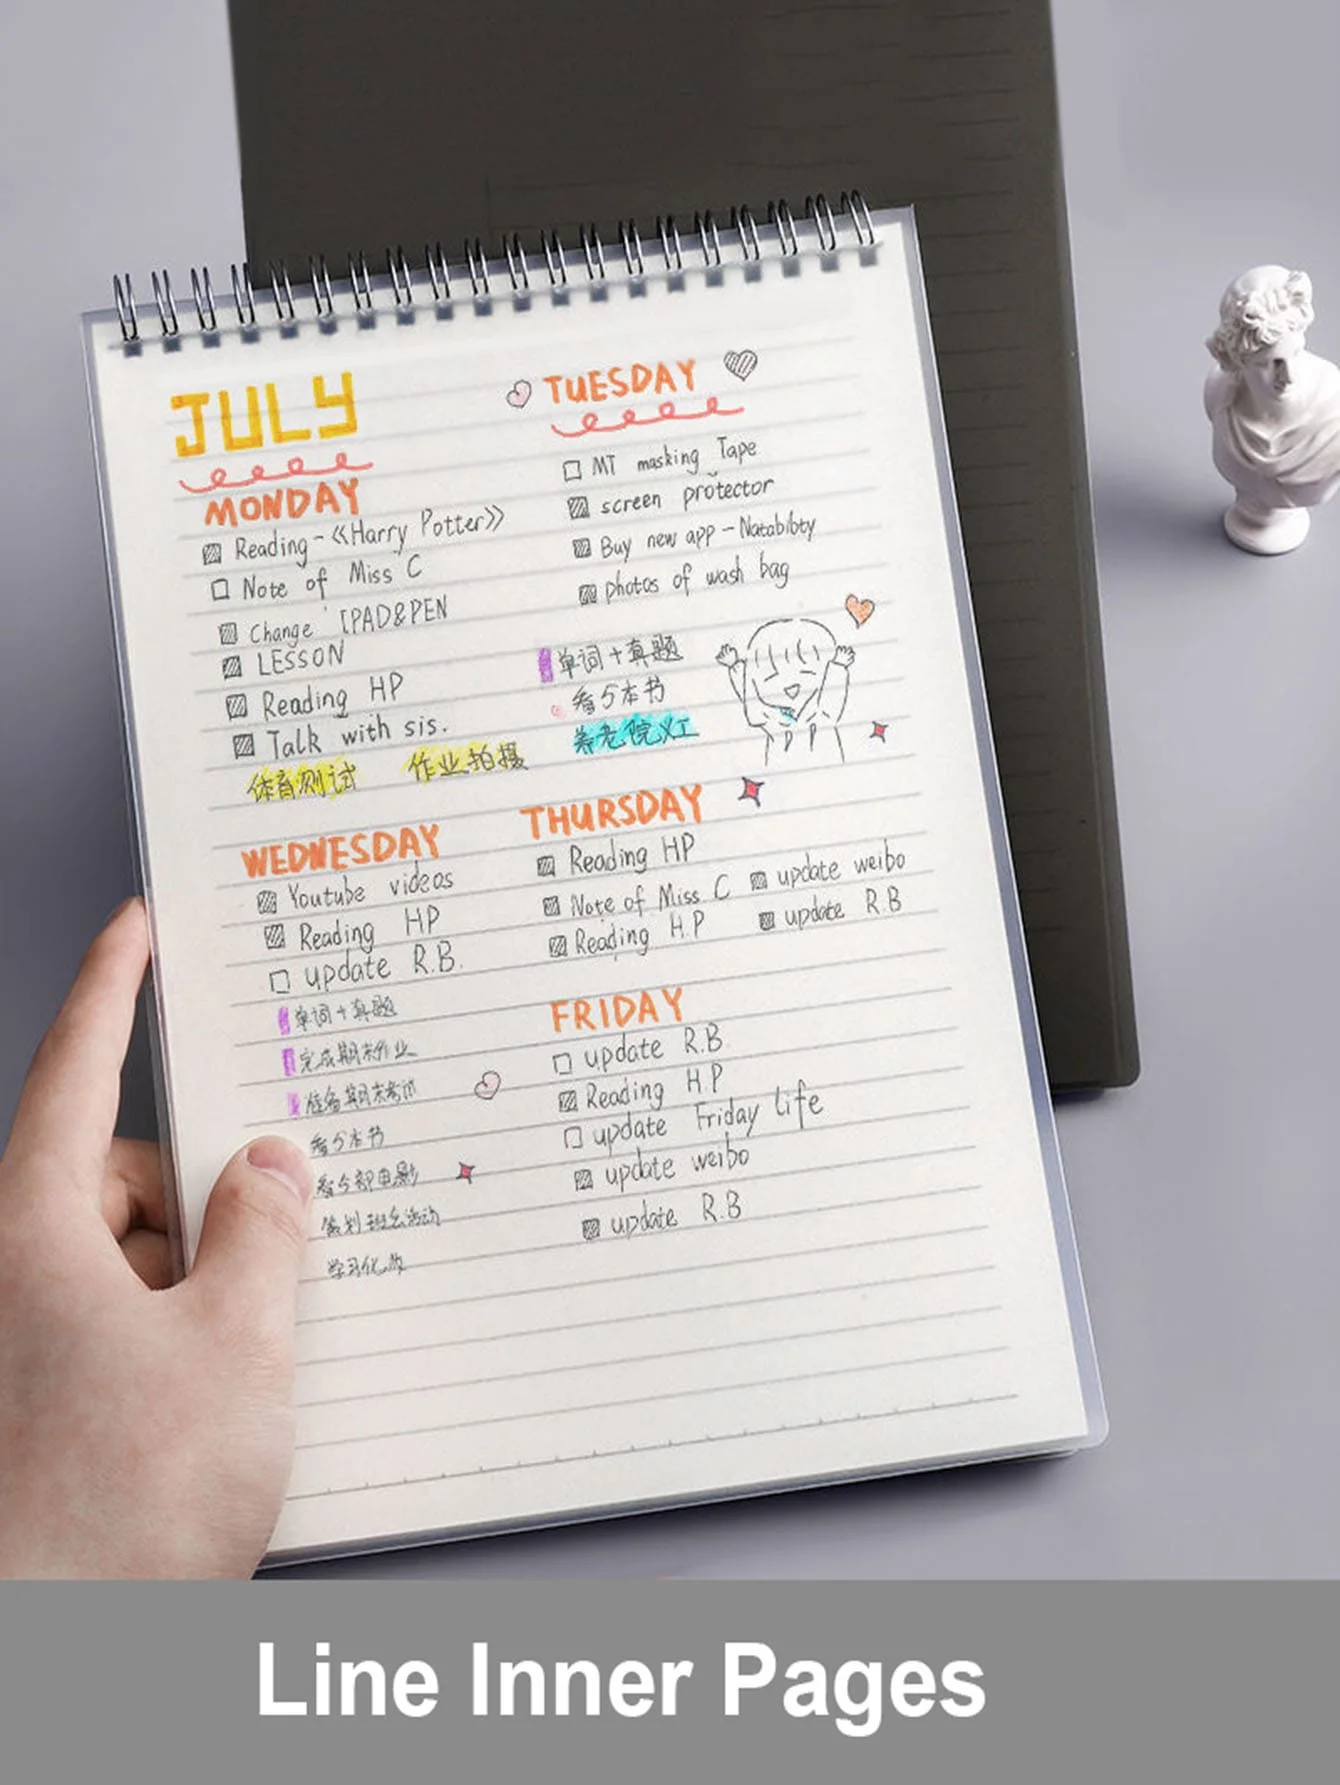 JULY
MONDAY
Reading-《Harry Potter》
Note of Miss C
Change IPAD&PEN
LESSON
Reading HP
Talk with sis.
体育测试 作业拍摄
TUESDAY
MT masking Tape
screen protector
Buy new app-Natabibty
photos of wash bag
单词+真题
看5本书
养老院义工
WEDNESDAY
Youtube videos
Reading HP
update R.B.
单词+真题
完成期末作业
准备期末考试
看5本书
看5部电影
策划班会活动
学习化妆
THURSDAY
Reading HP
Note of Miss C
Reading H.P
update weibo
update R.B
FRIDAY
update R.B
Reading HP
update Friday life
update weibo
update R.B
Line Inner Pages